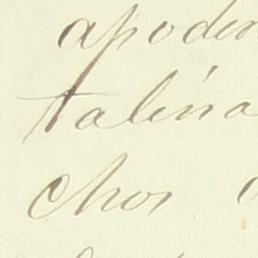 apoder
talina
chos